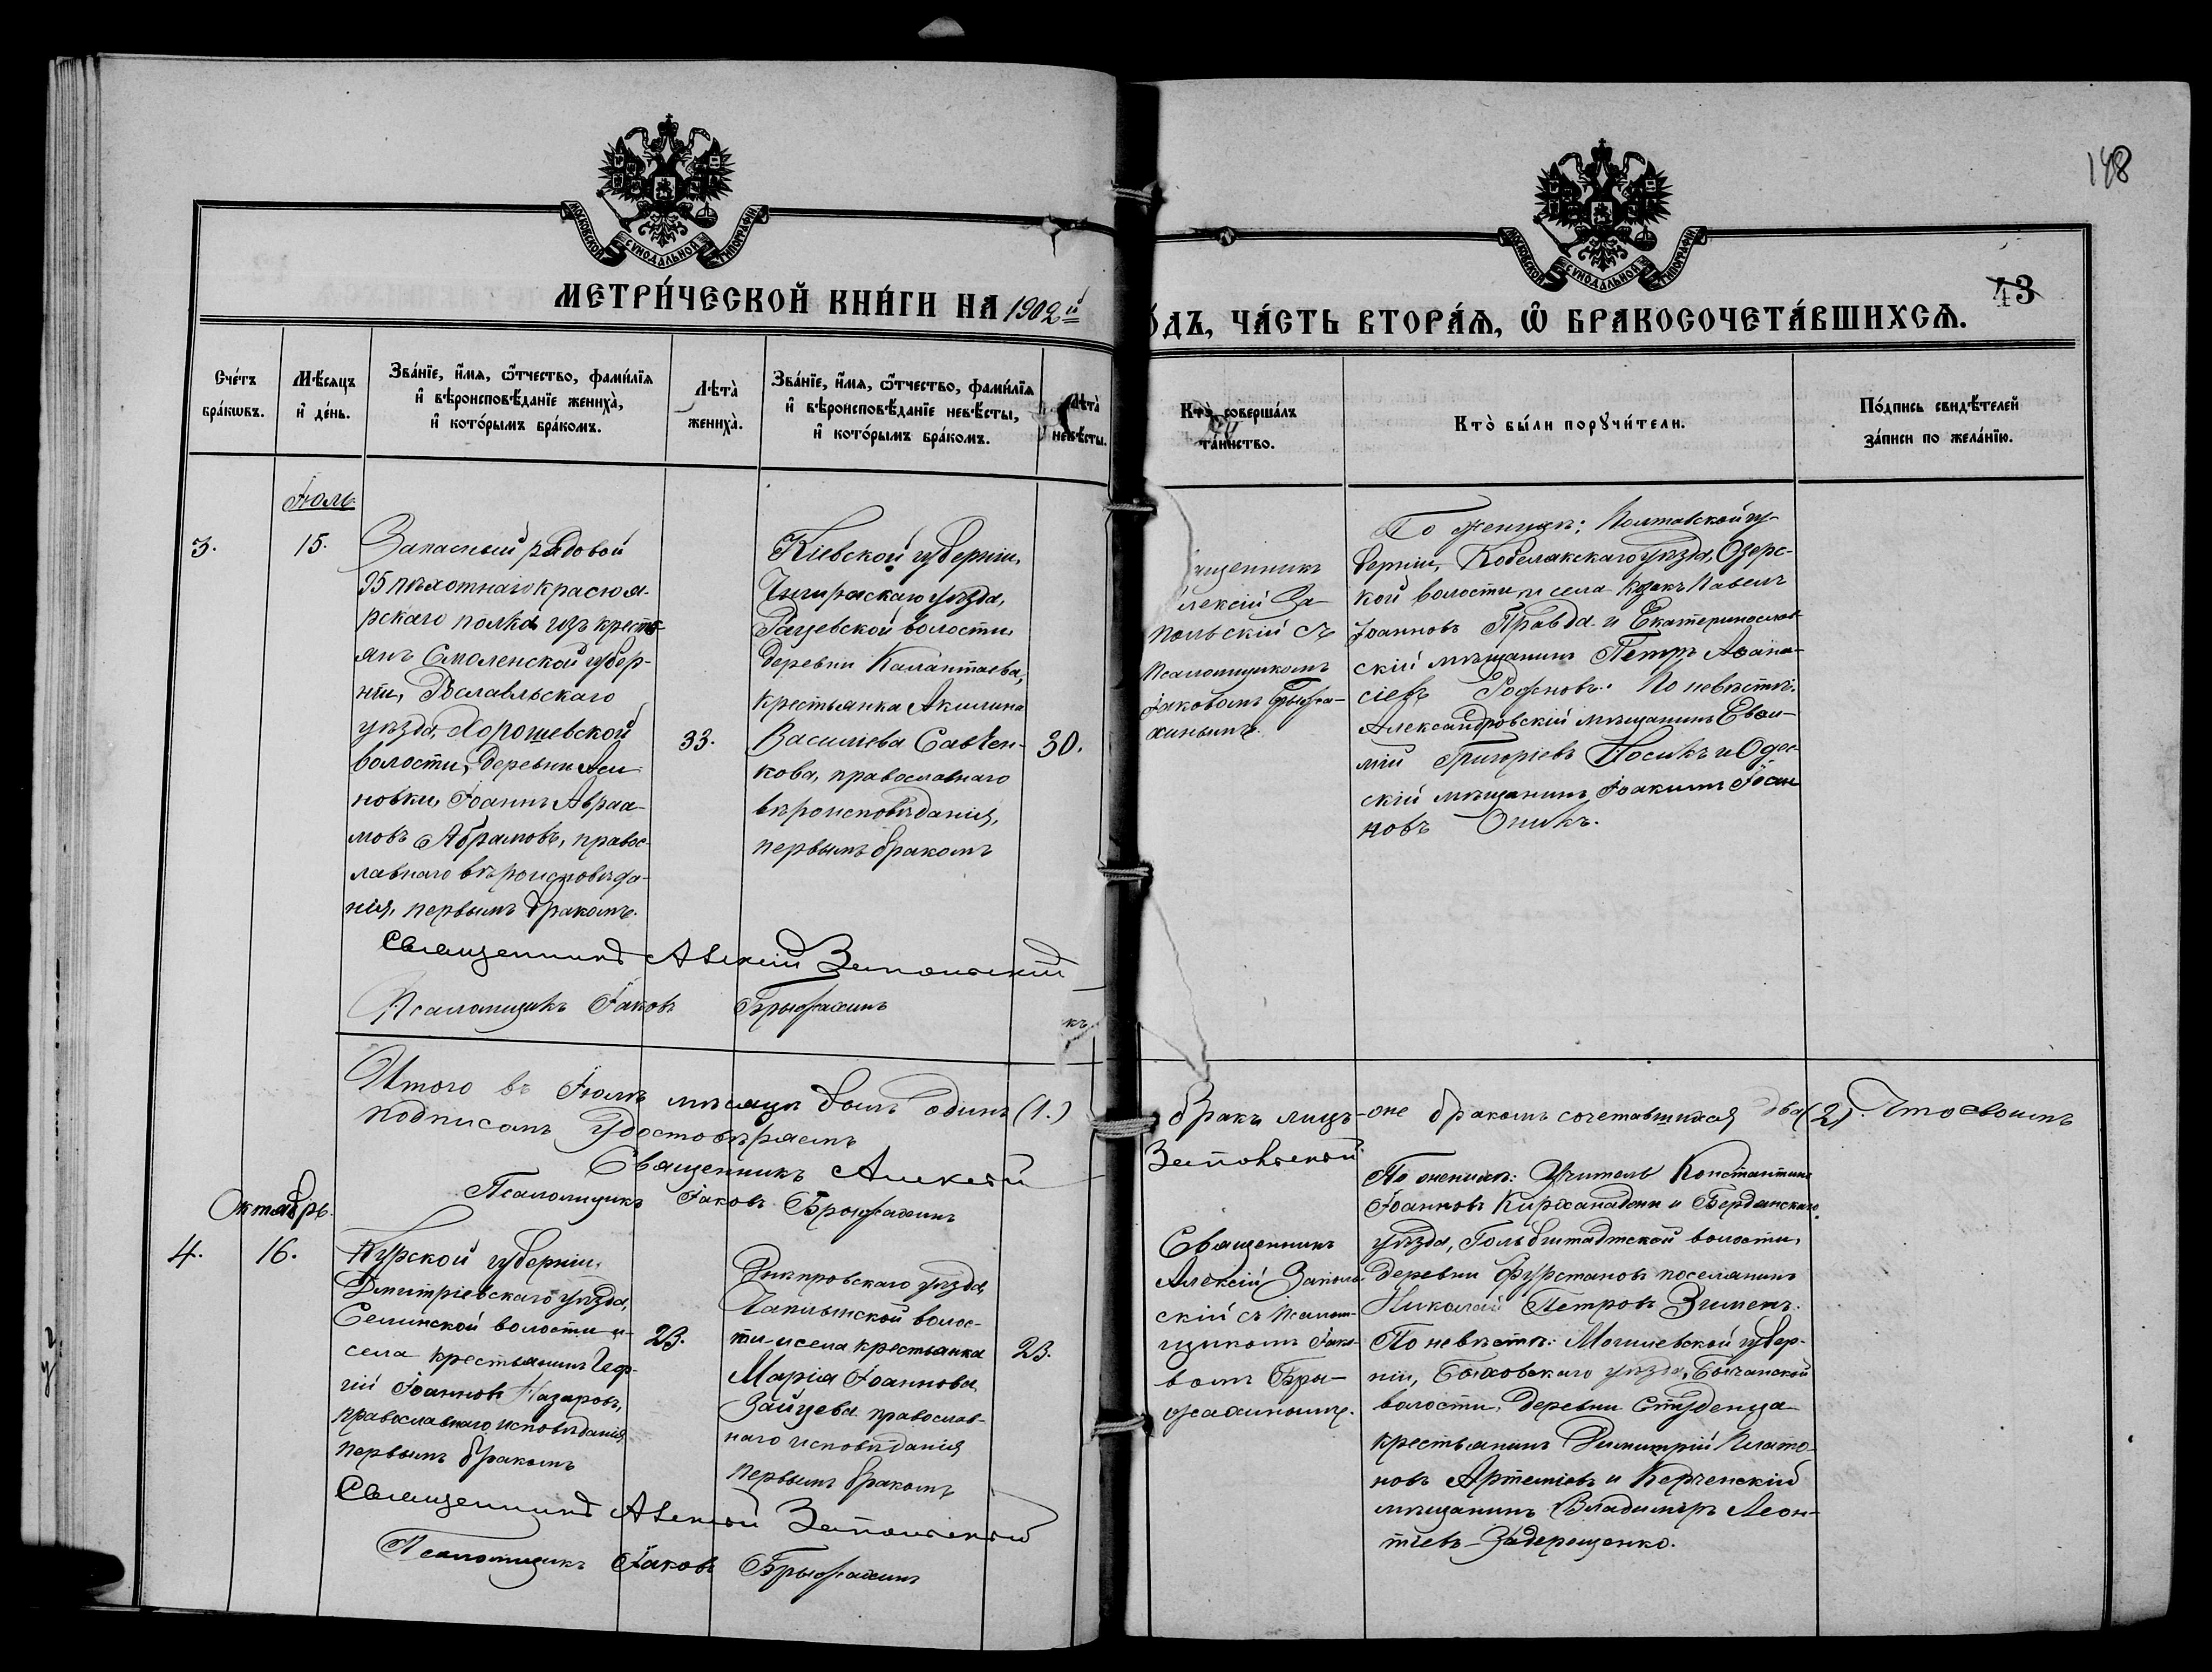 148
МОСКОВСКОЙ СѴНОДАЛЬНОЙ ТИПОГРАФІИ
МОСКОВСКОЙ СѴНОДАЛЬНОЙ ТИПОГРАФІИ
МЕТРИ́ЧЕСКОЙ КНИ́ГИ НА 1902й
О́ДЪ, ЧА́СТЬ ВТОРА́Ѧ, Ѡ҆ БРАКОСОЧЕТА́ВШИХСѦ.
43
Сче́тъ
бра́кѡвъ.
Мѣ́сяцъ
и҆ де́нь.
Зва́нїе, и҆́мя, ѻ҆́тчество, фами́лїя
и҆ вѣроисповѣ́данїе жениха̀,
и҆ кото́рымъ бра́комъ.
Лѣта̀
жениха̀.
Зва́нїе, и҆́мя, ѻ҆́тчество, фами́лїя
и҆ вѣроисповѣ́данїе невѣ́сты,
и҆ кото́рымъ бра́комъ.
Лѣта̀
невѣ́сты.
Кто̀ соверша́лъ
та́инство.
Кто̀ бы́ли порꙋчи́тели.
По́дпись свидѣ́телей
за́писи по жела́нїю.
3.
Іюль
15.
Запасный рядовой
95 пѣхотнаго Красноя-
рскаго полка изъ кресть-
янъ Смоленской губер-
ніи, Рославльскаго
уѣзда, Хорошевской
волости, деревни
новки, Іоаннъ Авраа-
мовъ Абрамовъ, правос-
лавнаго вѣроисповѣда-
нія, первымъ бракомъ.
33.
Кіевской губерніи,
Чигиринскаго уѣзда,
Рацевской волости,
деревни Калантаева,
крестьянка Акилина
Василіева Савчен-
кова, православнаго
вѣроисповѣданія,
первымъ бракомъ
30.
ященникъ
лексій За
польскій съ
Псаломщикомъ
Іаковомъ Брыжа-
хинымъ.
По женихѣ: Полтавской гу-
берніи, Кобелякскаго уѣзда, Озерс-
кой волости и села козакъ Павелъ
Іоанновъ Правда и Екатеринослав-
скій мѣщанинъ Петръ Аѳана-
сіевъ Рофновъ. По невѣстѣ:
Александровскій мѣщанинъ Евѳи-
мій Григоріевъ Носикъ и Одес-
скій мѣщанинъ Іоакимъ Іоан
новъ Оникъ.
Священникъ Алексій Запольскій
Псаломщикъ Іаковъ Брыжахинъ
Итого въ Іюлѣ мѣсяцѣ былъ одинъ (1.) бракъ лицъ-оне бракомъ сочетавшихся два (2). Что своимъ
подписомъ удостовѣряемъ
Священникъ Алексій Запольскій
Псаломщикъ Іаковъ Брыжахинъ
4.
Октябрь.
16.
Курской губерніи,
Дмитріевскаго уѣзда,
Селинской волости и
села крестьянинъ Геор-
гій Іоанновъ Назаровъ,
православнаго исповѣданія,
первымъ бракомъ
23.
Днѣпровскаго уѣзда,
Чаплынской волос-
ти и села крестьянка
Марія Іоаннова
Зайцева православ-
наго исповѣданія
первымъ бракомъ
23.
Священникъ
Алексій Заполь-
скій съ Псалом-
щикомъ Іако-
вомъ Бры-
жахинымъ.
По женихѣ: Учитель Константинъ
Іоанновъ и Бердянскаго
уѣзда, Гольбштадтской волости,
деревни Фурстановъ поселянинъ
Николай Петровъ Зименъ.
По невѣстѣ: Могилевской губер-
ніи, Быховскаго уѣзда,
волости, деревни Студенца
крестьянинъ Димитрій Плато-
новъ Артемовъ и Керченскій
мѣщанинъ Владимиръ Леон-
тіевъ Задерещенко.
Священникъ Алексій Запольскій
Псаломщикъ Іаковъ Брыжахинъ